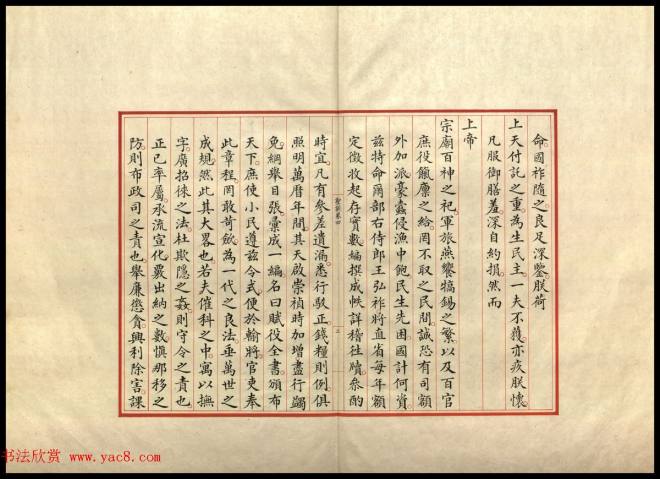 命國祚隨之良足深鑒朕荷
上天付託之重為生民主一夫不獲亦疚朕懷
凡服御膳羞深自約損然而
上帝
宗廟百神之祀軍旅燕饗犒錫之繁以及百官
庶役餼廩之給罔不取之民間誠恐有司額
外加派豪蠹侵漁中飽民生先困國計何資
茲特命爾部右侍郎王弘祚將直省每年額
定徵收起存實數編撰成帙詳稽往牘參酌
時宜凡有參差遺漏悉行駁正錢糧則例俱
照明萬曆年間其天啟崇禎時加增盡行蠲
免綱舉目張彙成一編名曰賦役全書頒布
天下庶使小民遵茲令式便於輸將官吏奉
此章程罔敢苛斂為一代之良法垂萬世之
成規然此其大畧也若夫催科之中寓以撫
字廣招徠之法杜欺隱之姦則守令之責也
正己率屬承流宣化覈出納之數慎那移之
防則布政司之責也舉廉懲貪興利除害課
书法欣赏 www.yac8.com